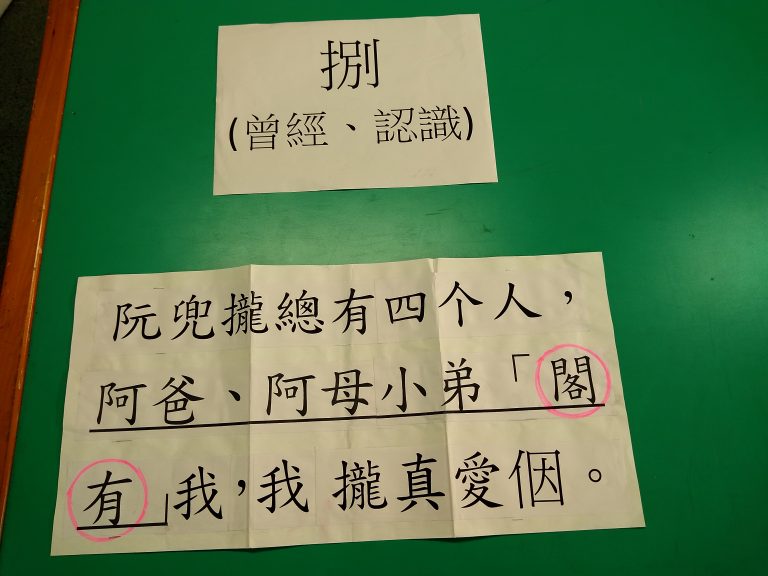 捌
(曾經、認識)
阮兜攏總有四个人，
阿爸、阿母小弟「閣
有」我，我 攏真愛𪜶。